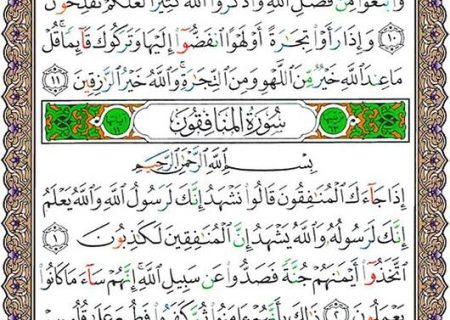 وَابْتَغُوا مِن فَضْلِ اللَّهِ وَاذْكُرُوا اللَّهَ كَثِيرًا لَّعَلَّكُمْ تُفْلِحُونَ
١٠ وَإِذَا رَأَوْا۟ تِجَٰرَةً أَوْ لَهْوًا ٱنفَضُّوٓا۟ إِلَيْهَا وَتَرَكُوكَ قَآئِمًا ۚ قُلْ
مَا عِندَ ٱللَّهِ خَيْرٌ مِّنَ ٱللَّهْوِ وَمِنَ ٱلتِّجَٰرَةِ ۚ وَٱللَّهُ خَيْرُ ٱلرَّٰزِقِينَ ١١
سُورَةُ المُنَافِقُون
بِسْمِ ٱللَّهِ ٱلرَّحْمَٰنِ ٱلرَّحِيمِ
إِذَا جَآءَكَ ٱلْمُنَٰفِقُونَ قَالُوا۟ نَشْهَدُ إِنَّكَ لَرَسُولُ ٱللَّهِ ۗ وَٱللَّهُ يَعْلَمُ
إِنَّكَ لَرَسُولُهُۥ وَٱللَّهُ يَشْهَدُ إِنَّ ٱلْمُنَٰفِقِينَ لَكَٰذِبُونَ ١
ٱتَّخَذُوٓا۟ أَيْمَٰنَهُمْ جُنَّةً فَصَدُّوا۟ عَن سَبِيلِ ٱللَّهِ ۚ إِنَّهُمْ سَآءَ مَا كَانُوا۟
يَعْمَلُونَ ٢ ذَٰلِكَ بِأَنَّهُمْ ءَامَنُوا۟ ثُمَّ كَفَرُوا۟ فَطُبِعَ عَلَىٰ قُلُوبِهِمْ